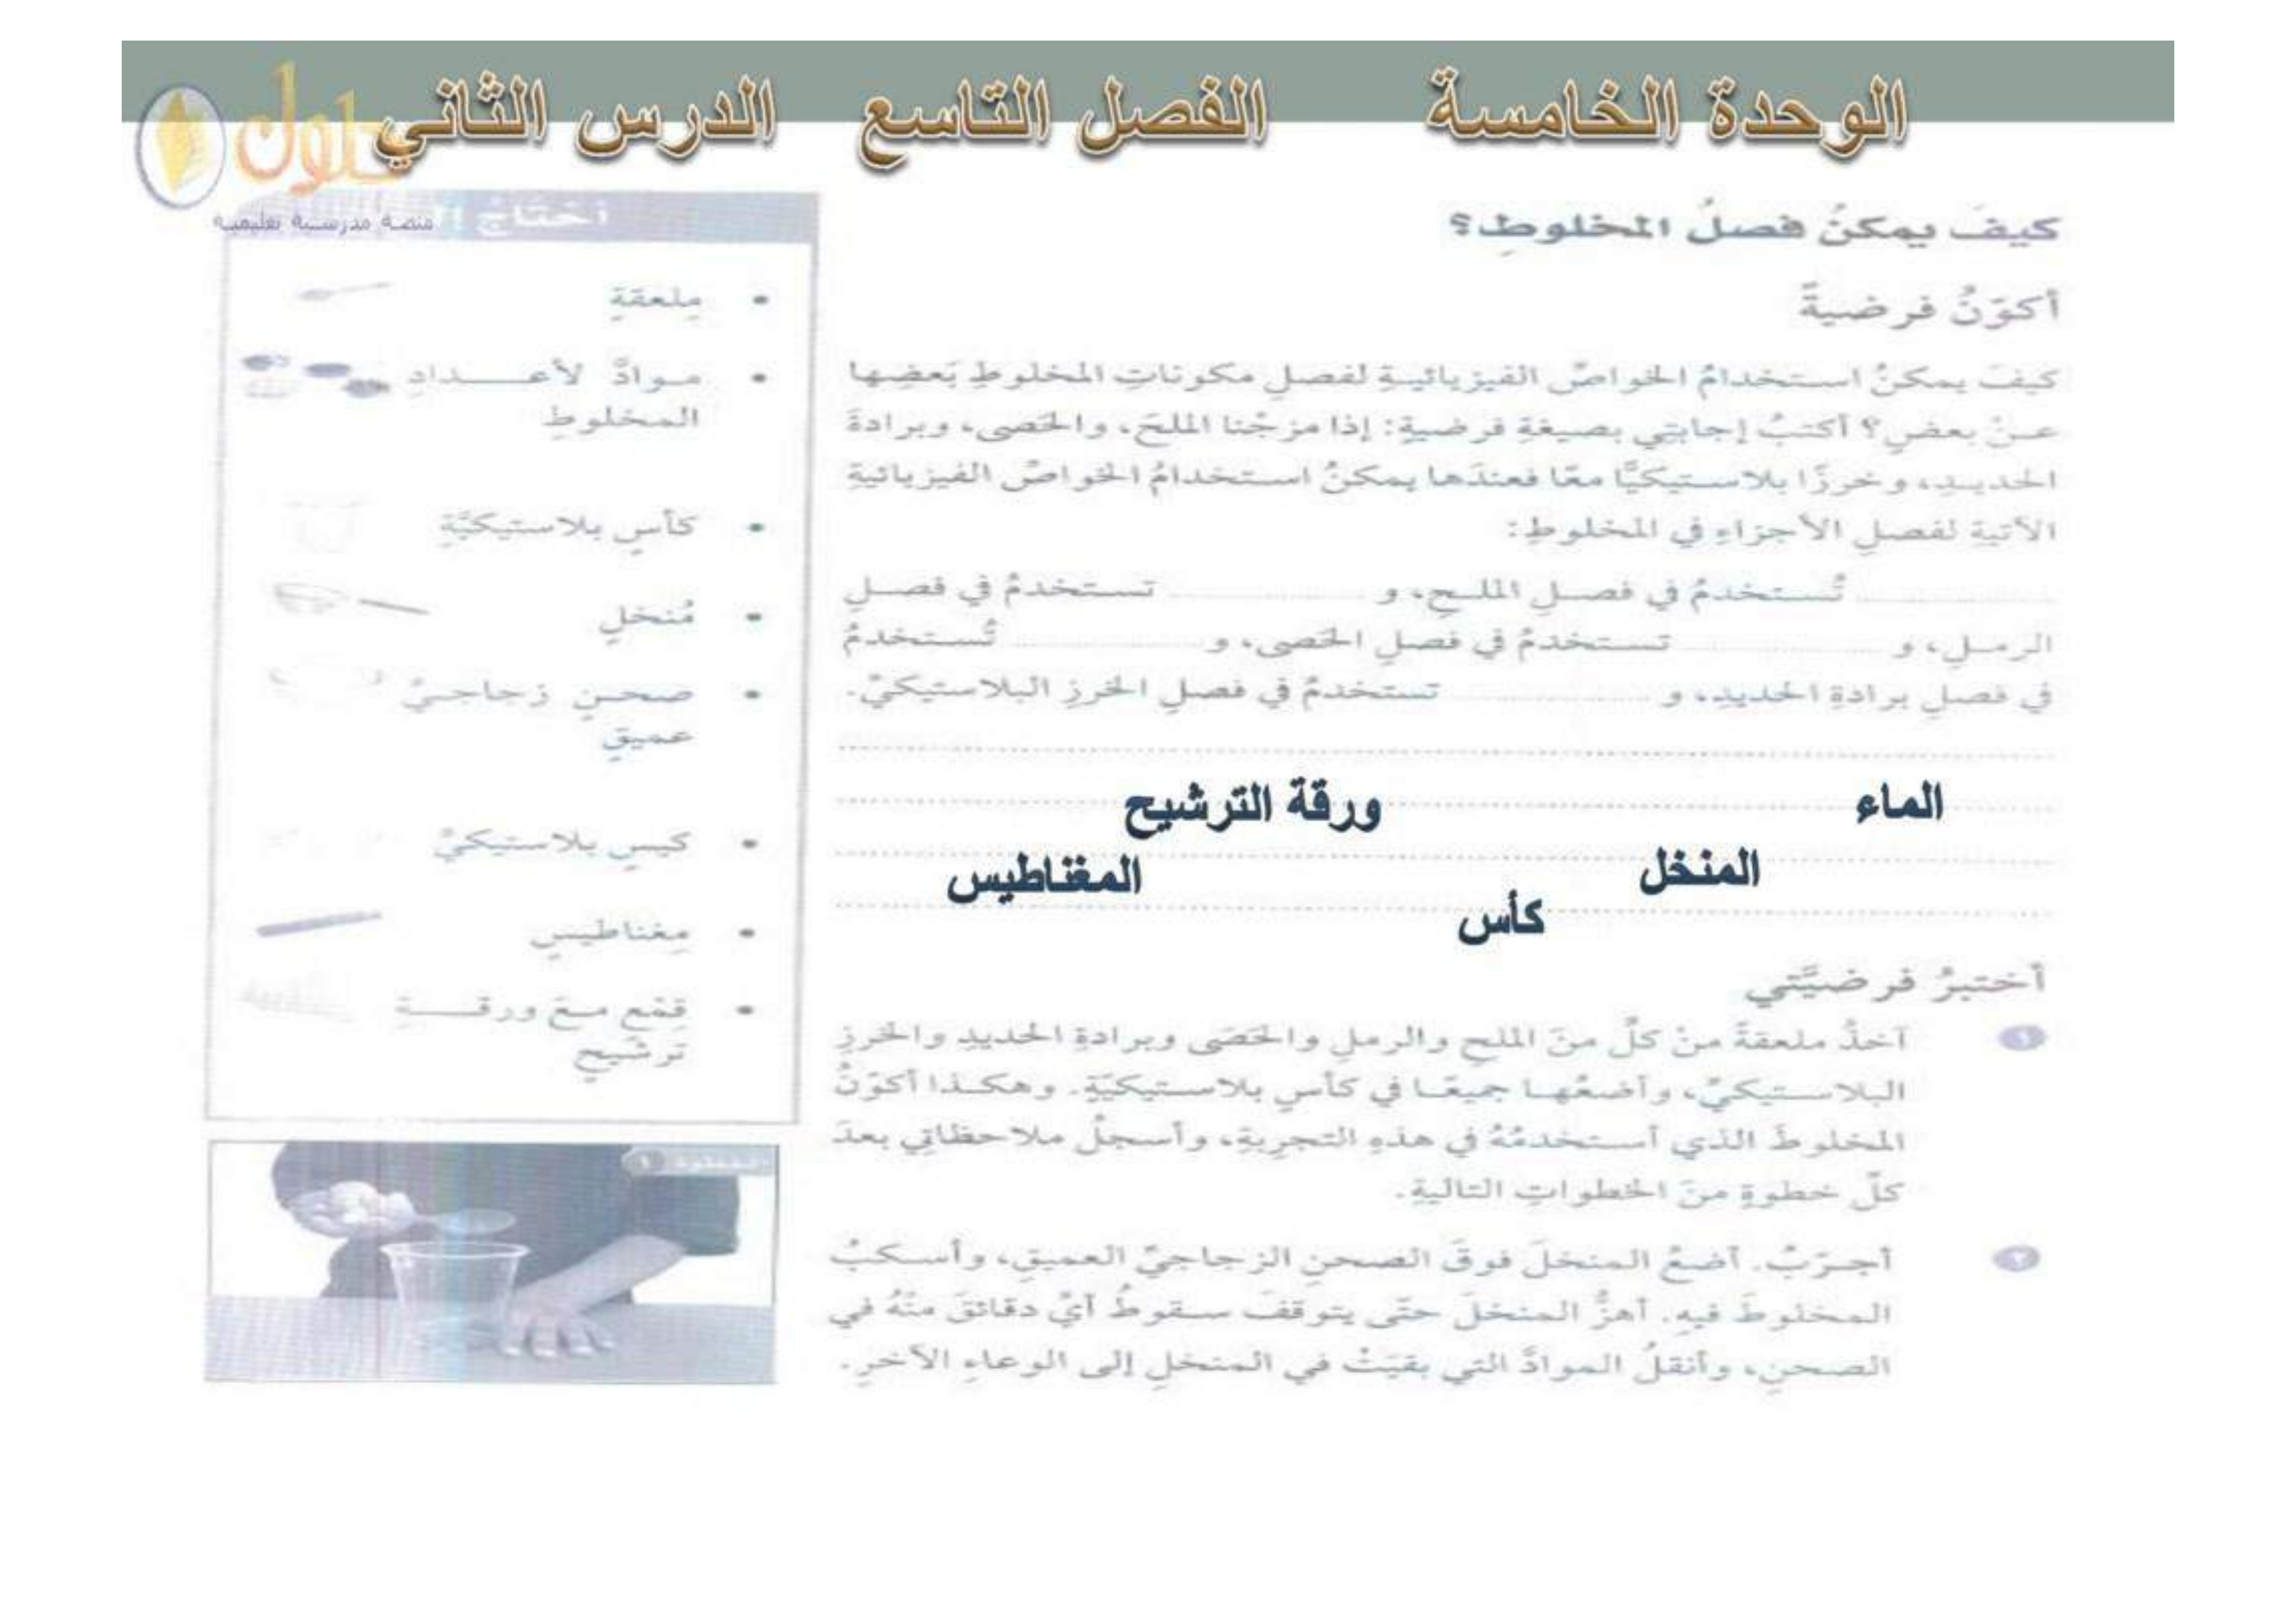 الوحدة الخامسة الفصل التاسع الدرس الثاني
حلول
منصة مدرسية تعليمية
كيفَ يمكنُ فصلُ المخلوطِ؟
أكوّنُ فرضيةً
كيفَ يمكنُ استخدامُ الخواصِّ الفيزيائيةِ لفصلِ مكوناتِ المخلوطِ بَعضِها
عنْ بعضٍ؟ أكتبُ إجابتِي بصيغةِ فرضيةٍ: إذا مزجْنا الملحَ، والحَصى، وبرادةَ
الحديدِ، وخرزًا بلاستيكيًّا معًا فعندَها يمكنُ استخدامُ الخواصِّ الفيزيائيةِ
الآتيةِ لفصلِ الأجزاءِ في المخلوطِ:
تُستخدمُ في فصلِ الملحِ، و تستخدمُ في فصلِ
الرملِ، و تستخدمُ في فصلِ الحَصى، و تُستخدمُ
في فصلِ برادةِ الحديدِ، و تستخدمُ في فصلِ الخرزِ البلاستيكيِّ.
الماء ورقة الترشيح
المنخل المغناطيس
كأس
أختبرُ فرضيَّتي
١ آخذُ ملعقةً منْ كلٍّ منَ الملحِ والرملِ والحَصَى وبرادةِ الحديدِ والخرزِ
البلاستيكيِّ، وأضعُها جميعًا في كأسٍ بلاستيكيّةٍ. وهكذا أكوّنُ
المخلوطَ الذي أستخدمُهُ في هذهِ التجرِبةِ، وأسجلُ ملاحظاتِي بعدَ
كلِّ خطوةٍ منَ الخطواتِ التاليةِ.
٢ أجرّبُ. أضعُ المنخلَ فوقَ الصحنِ الزجاجيِّ العميقِ، وأسكبُ
المخلوطَ فيهِ. أهزُّ المنخلَ حتّى يتوقفَ سقوطُ أيِّ دقائقَ منْهُ في
الصحنِ، وأنقلُ الموادَّ التي بقيَتْ في المنخلِ إلى الوعاءِ الآخرِ.
أحتاجُ
• مِلعقةٍ
• موادَّ لأعدادِ
المخلوطِ
• كأسٍ بلاستيكيَّةٍ
• مُنخلٍ
• صحنٍ زجاجيٍّ
عميقٍ
• كيسٍ بلاستيكيٍّ
• مِغناطيسٍ
• قِمْعٍ معَ ورقةِ
ترشيحٍ
الخطوة ١